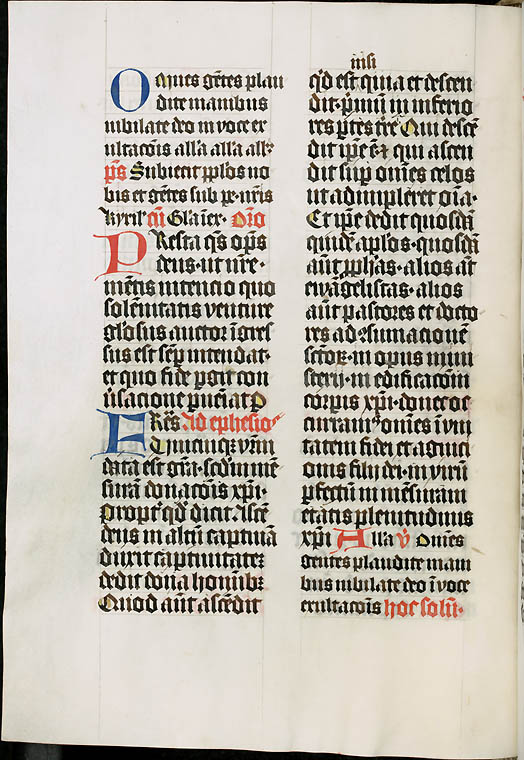 Omnes gētes plau
dite manibus
iubilate deo in voce ex
ultacōis alla alla alla
p̄s Subiecit pplōs no
bis et gētes sub pe · nr̄is
kyril' cū Gla i ex · Oro
PResta qs̄ op̄s
deus · ut nr̄e ·
mētis intencio quo
solēnitatis venture
glosus auctor īgres
sus est sēp intendat ·
et quo fide pgit con
v̄sacione pueniat p
FRēs Ad ephesios
Unicuiqz vr̄m
data est gr̄a · scdm mē
surā donacōis xpi ·
propt' qd dicit Ascē
dens in altū captiuā
duxit captiuitatez
dedit dona hominibz
Quod aūt ascēdit
insi
qd est quia et descen
dit · pmū in inferio
res ptes tr̄e Qui descē
dit ip̄e ē & qui ascen
dit sup omēs celos
ut adimpleret oīa ·
Et ip̄e dedit quosdā
quidē aplos · quosdā
aūt pphas · alios aūt
ewāgelistas · alios
aūt pastores et docto
res ad ꝯsumacionē
sctoꝝ · in opus mini
sterij · in edificacōm
corpis xpi · donec oc
curram' omēs ī vni
tatem fidei et agnici
onis filij dei · in virū
pfectū in mēsuram
etatis plenitudinis
xpi Alla v̄ Omēs
gentes plaudite mani
bus iubilate deo ī voce
exultacōis hoc solū ·